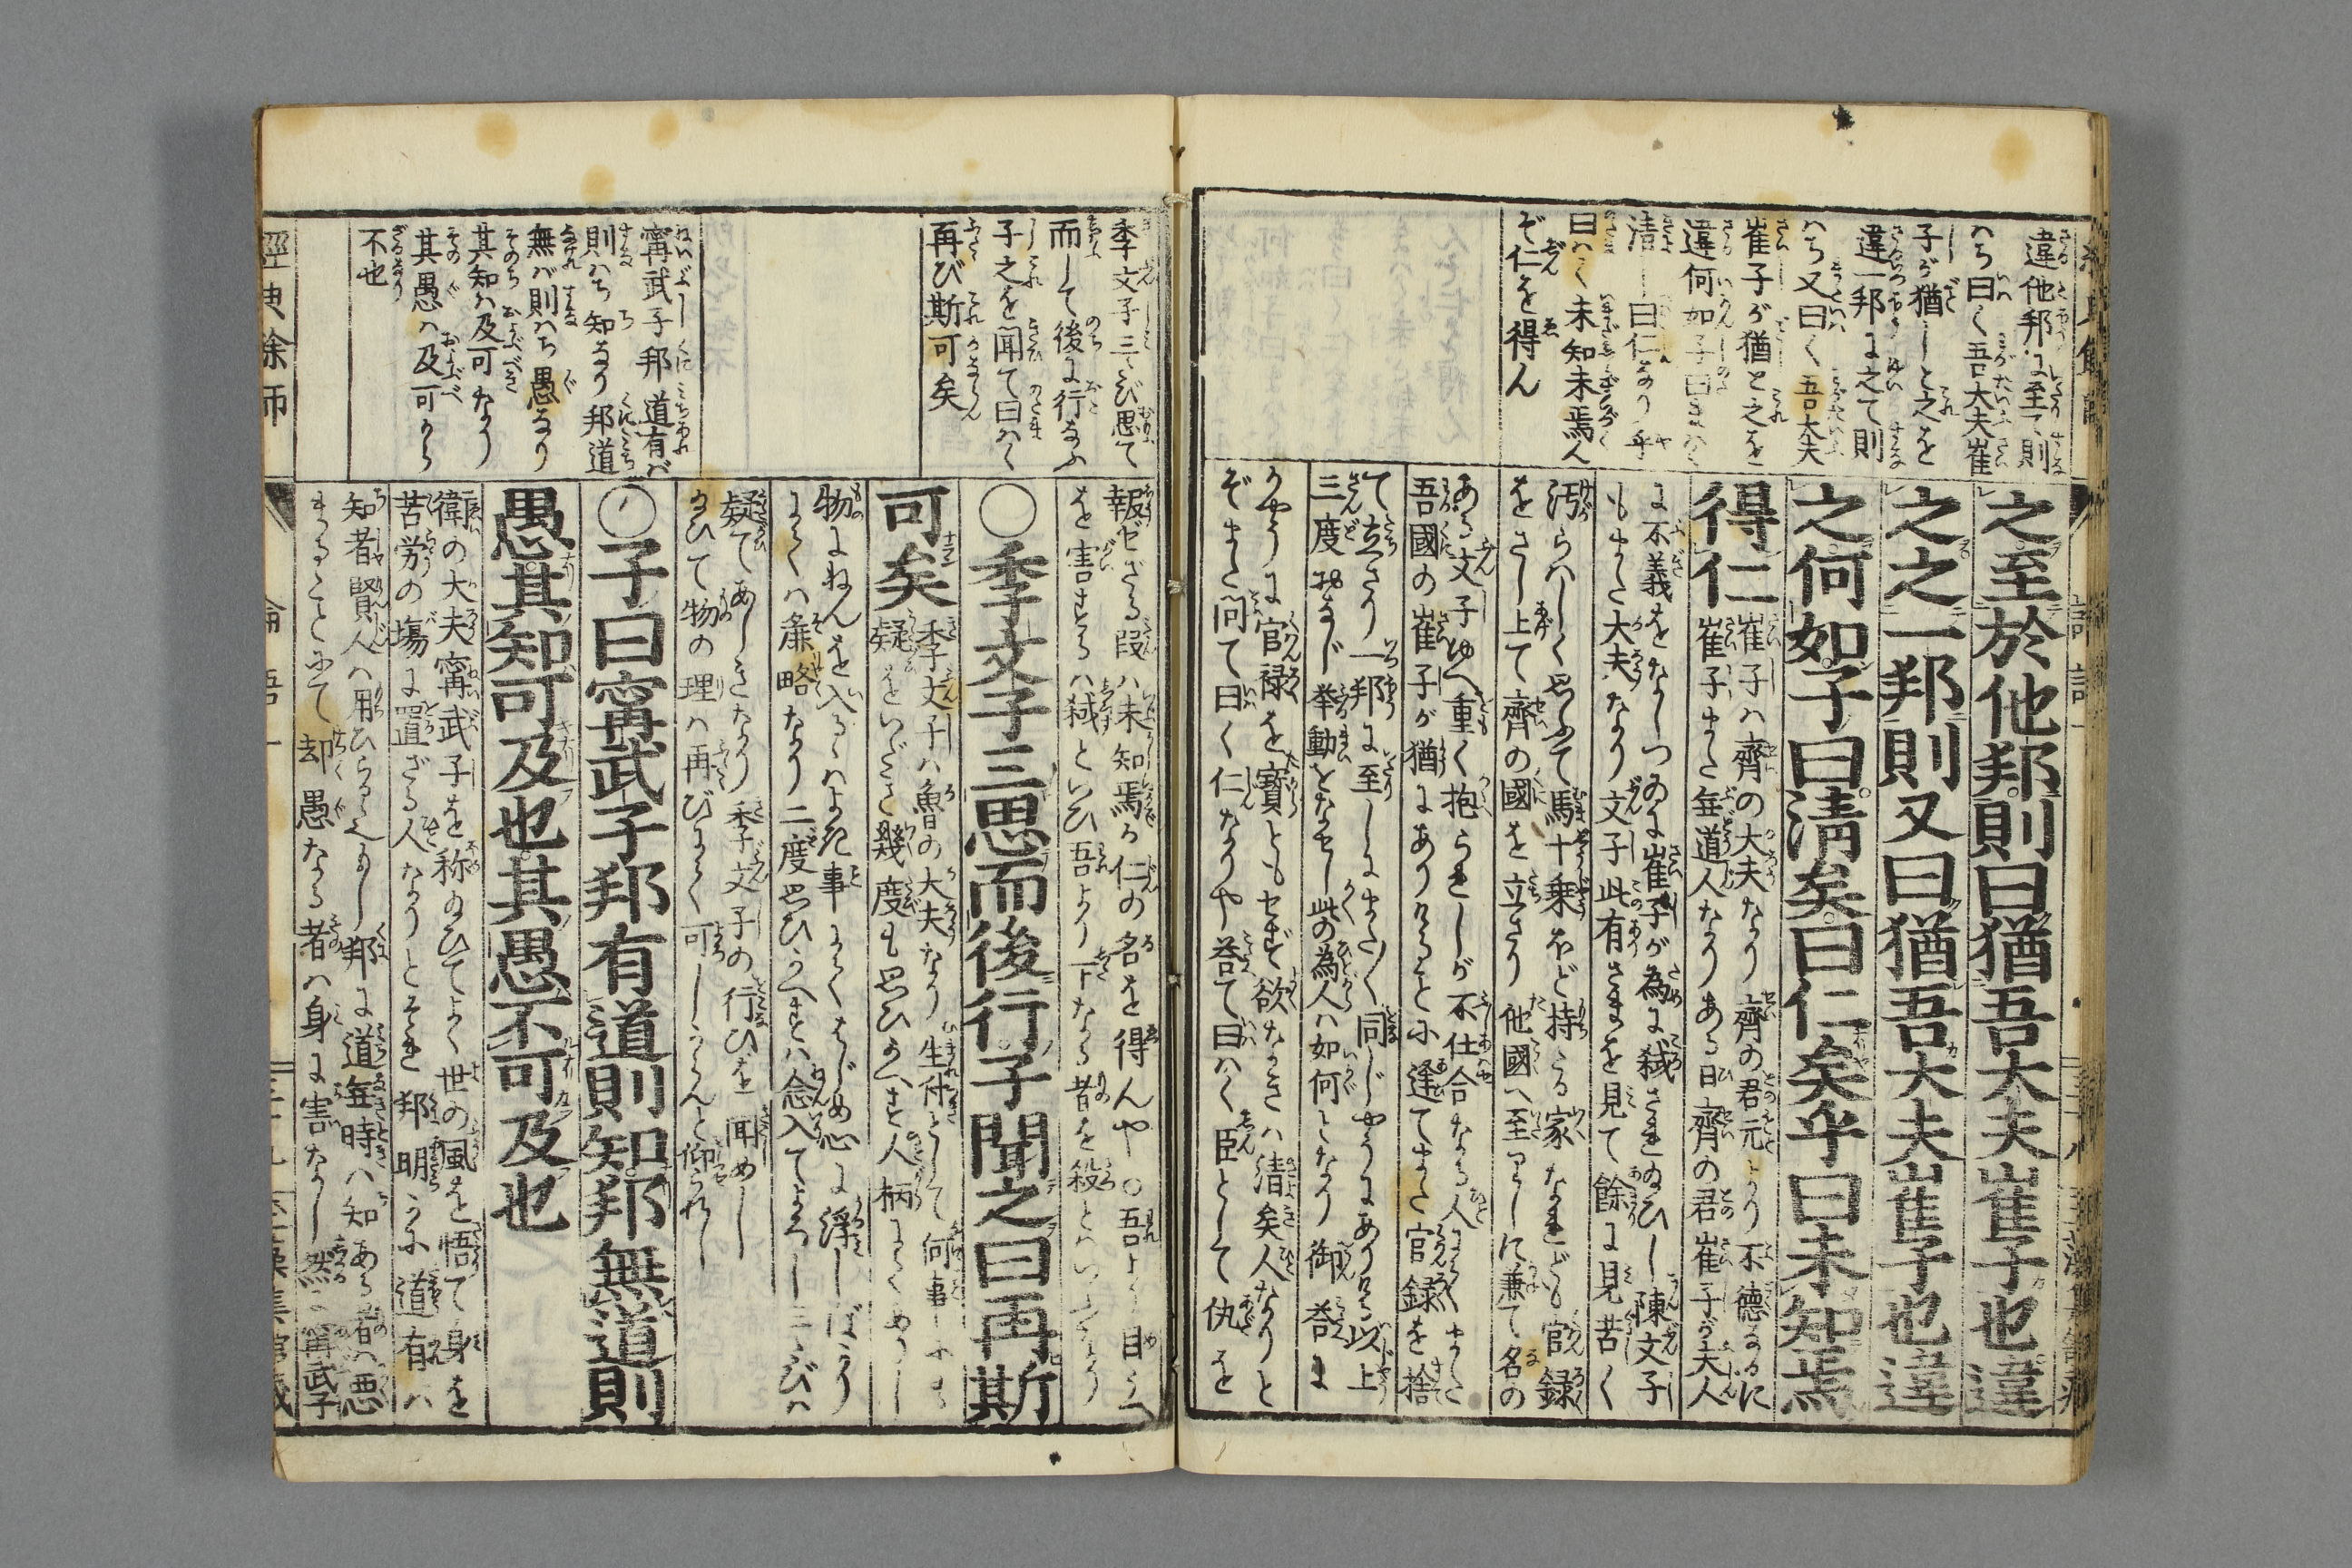 違他邦に至て則
ハち曰く吾大夫崔
子が猶しと之を
違一邦に之て則
ハち又曰く吾大夫
崔子が猶と之を
違何如子曰まハく
清し曰仁なり乎
曰ハく未知未焉ん
ぞ仁を得ん
之至於他邦則曰猶吾大夫崔子也違
之之一邦則又曰猶吾大夫崔子也違
之何如子曰清矣曰仁矣乎曰未知焉
得仁
崔子ハ齊の大夫なり齊の君元より不德なるに
崔子また無道人なりある日齊の君崔子が夫人
に不義をなしつゐに崔子が為に弑されゐひし陳文子
もまた大夫なり文子此有さまを見て餘に見苦く
汚らハしく思ふて馬十乗ほど持たる家なれども官録
をさし上て齊の國を立さり他國へ至りしに兼て名の
ある文子ゆへ重く抱られしが不仕合なる人にてまた
吾國の崔子が猶にありけると小逢てまた官録を捨
て立さり一邦に至しにまた〱同じやうにあり以上
三度おなじ挙動をなせし此の為人ハ如何となり御荅に
かやうに官禄を寶ともせず欲なきハ清矣人なりと
ぞまた問て曰く仁なりや荅て曰ハく臣として仇を
季文子三たび思て
而して後に行なふ
子之を聞て曰ハく
再び斯可矣
甯武子邦道有バ
則ハち知なり邦道
無バ則ハち愚なり
其知ハ及可なり
其愚ハ及可から
不也
報ぜざる段ハ未知焉る仁の名を得んや○吾より目うへ
を害するハ弑といひ吾より下なる者を殺といふなり
○季文子三思而後行子聞之曰再斯
可矣
季文子ハ魯の大夫なり生付として何事にも
疑をいだき幾度も思ひかへす人柄にてありし
物にねんを入るハよき事にてはじめ心に浮しばかり
にてハ麁略なり二度思ひかへすハ念入てよろし三たびハ
疑てあしきなり季文子の行ひを聞めし
ゐひて物の理ハ再びにて可しからんと仰られし
○子曰甯武子邦有道則知邦無道則
愚其知可及也其愚不可及也
衛の大夫甯武子を称ゐひてよく世の風を悟て身を
苦労の場に置ざる人なりとぞ邦明かに道有ハ
知者賢人ハ用ひらるべし邦に道無時ハ知ある者ハ悪
まるることにて却愚なる者ハ身に害なし然るに甯武子
經典餘師
論語一